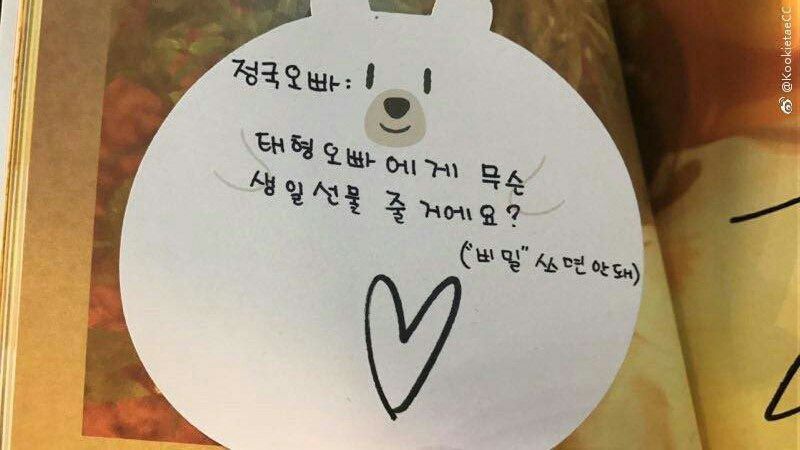 @KookietaeCC
정국오빠:
태형오빠에게 무슨
생일선물 줄거에요?
("비밀" 쓰면안돼)